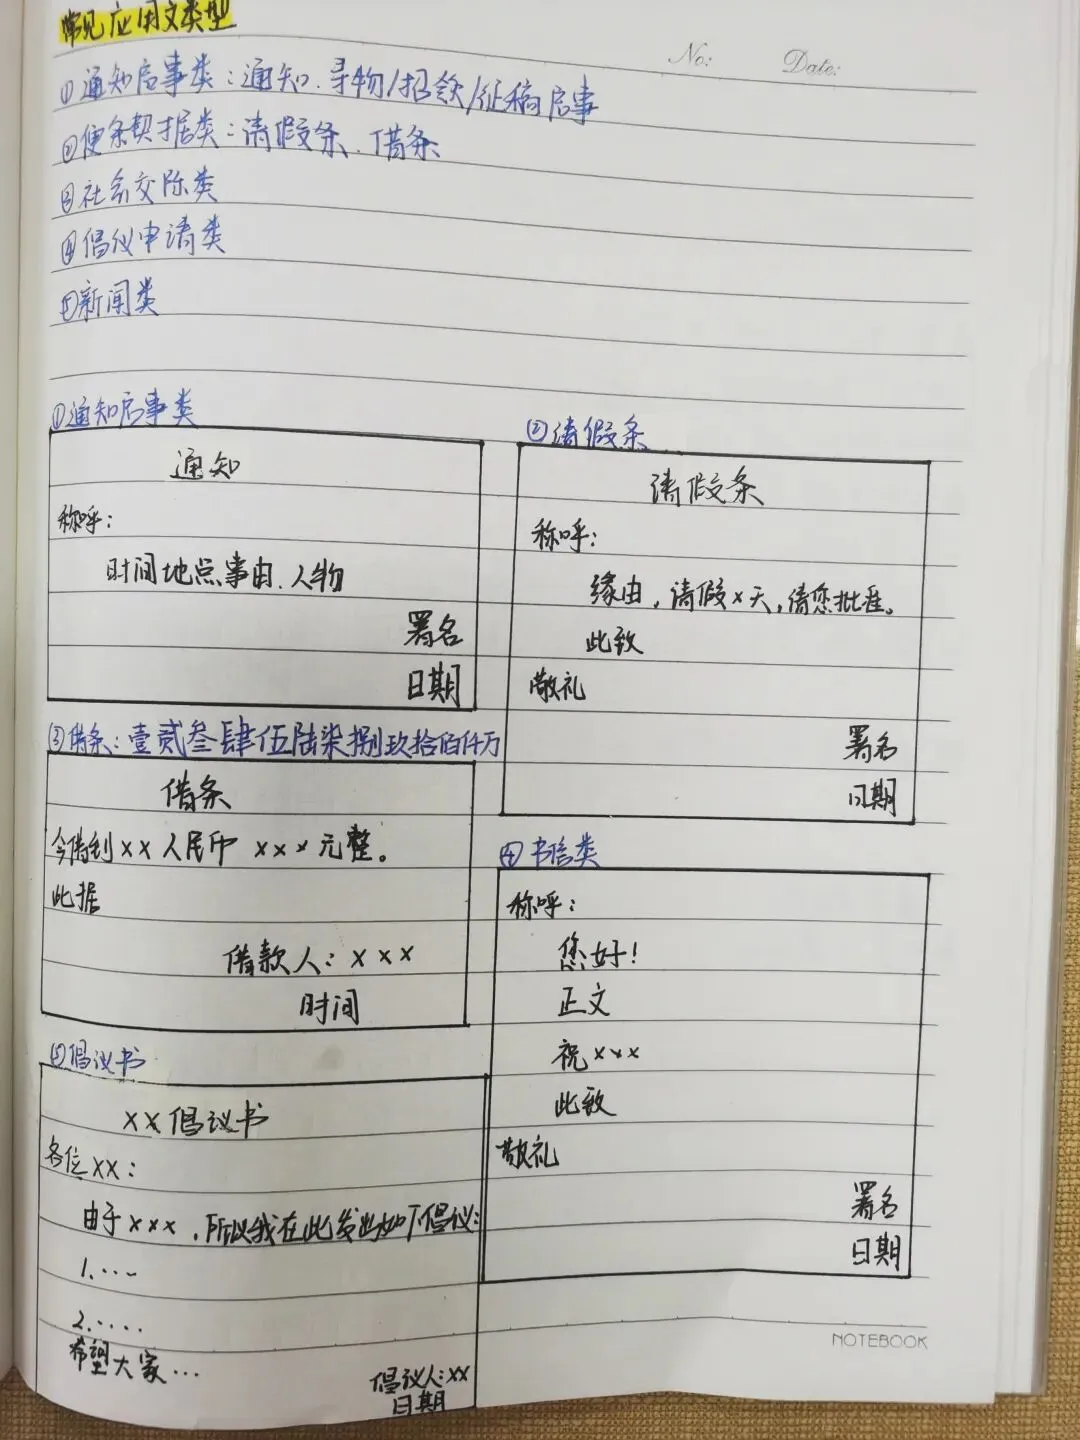 常见应用文类型
No:
Date:
①通知启事类：通知、寻物/招领/征稿启事
②便条契据类：请假条、借条
③社会交际类
④倡议申请类
⑤新闻类
①通知启事类
通知
称呼：
时间地点事由、人物
署名
日期
②请假条
请假条
称呼：
缘由，请假×天，请您批准。
此致
敬礼
署名
日期
③借条：壹贰叁肆伍陆柒捌玖拾佰仟万
借条
今借到××人民币 ×××元整。
此据
借款人：×××
时间
④书信类
称呼：
您好！
正文
祝×××
此致
敬礼
署名
日期
⑤倡议书
××倡议书
各位××：
由于×××，所以我在此发出如下倡议：
1.····
2.·····
希望大家···
倡议人：××
日期
NOTEBOOK